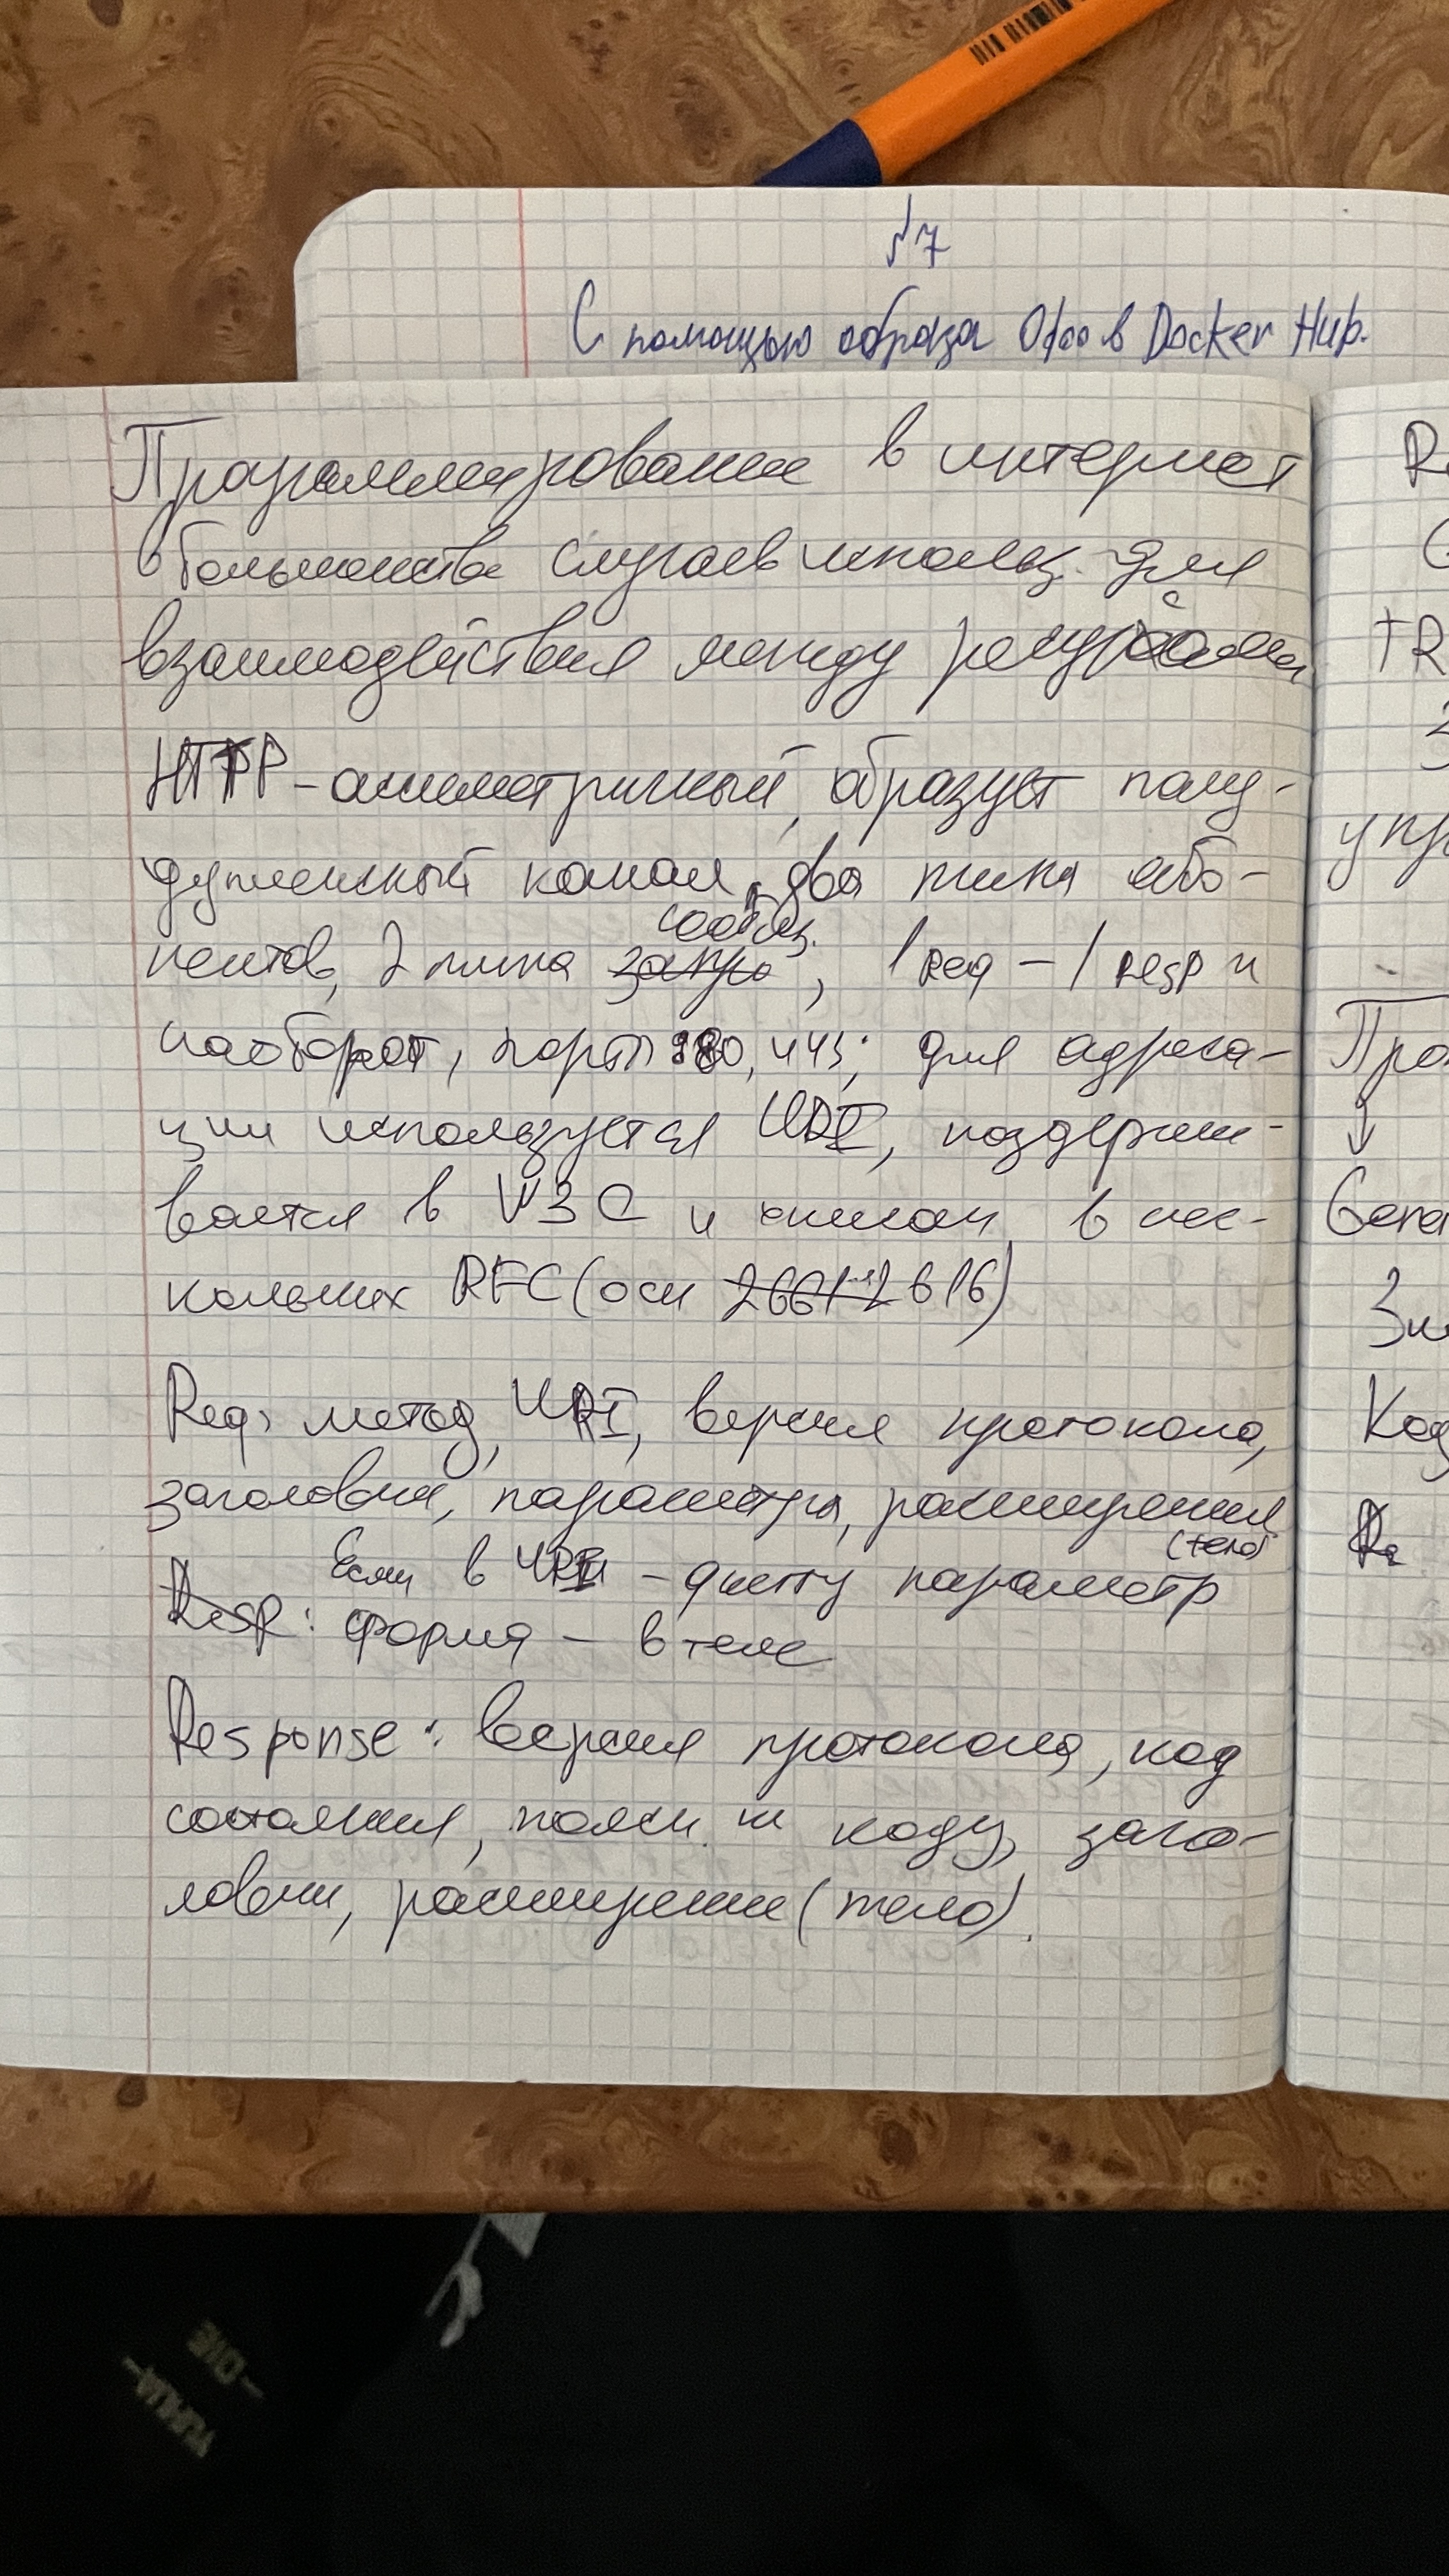 №7
С помощью образа Odoo в Docker Hub.
Программирование в интернет
в большинстве случаев использ. для
взаимодействия между ресурсами
HTTP - асиметричный, образует полу-
дуплексный канал, два типа або-
нентов, 2 типа запро сообщ., 1 req - 1 resp и
наоборот, порт 80, 443; для адреса-
ции используется URI, поддержи-
вается в W3C и описан в нес-
кольких RFC (осн 2616)
Req: метод, URI, версия протокола,
заголовки, параметры, расширения
(тело)
Если в URI - query параметр
Resp: форма - в теле
Response: версия протокола, код
состояния, поясн. к коду, заго-
ловки, расширение (тело).
R
упр
Про
↓
Gene
Зн
Код
Re